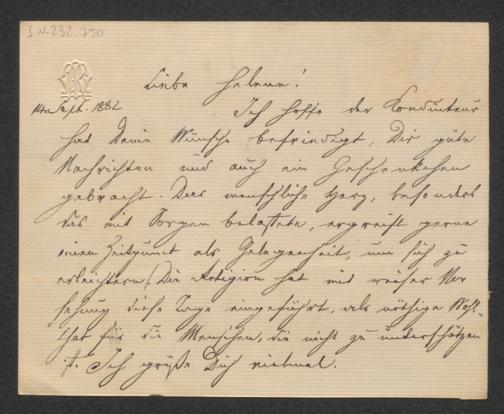 I.N. 232.790
Liebe Helene!
14ten Sept. 1882
Ich hoffe der Conducteur
hat Deine Wünsche befriedigt, Dir gute
Nachrichten und auch ein Geschenkchen
gebracht. Das menschliche Herz, besonders
das mit Sorgen belastete, ergreift gerne
einen Zeitpunkt als Gelegenheit, um sich zu
erleichtern. Die Religion hat mit weiser Vor
sehung diese Tage eingeführt, als nöthige Wohl-
that für die Menschen, die nicht zu unterschätzen
ist. Ich grüße Dich vielmal.